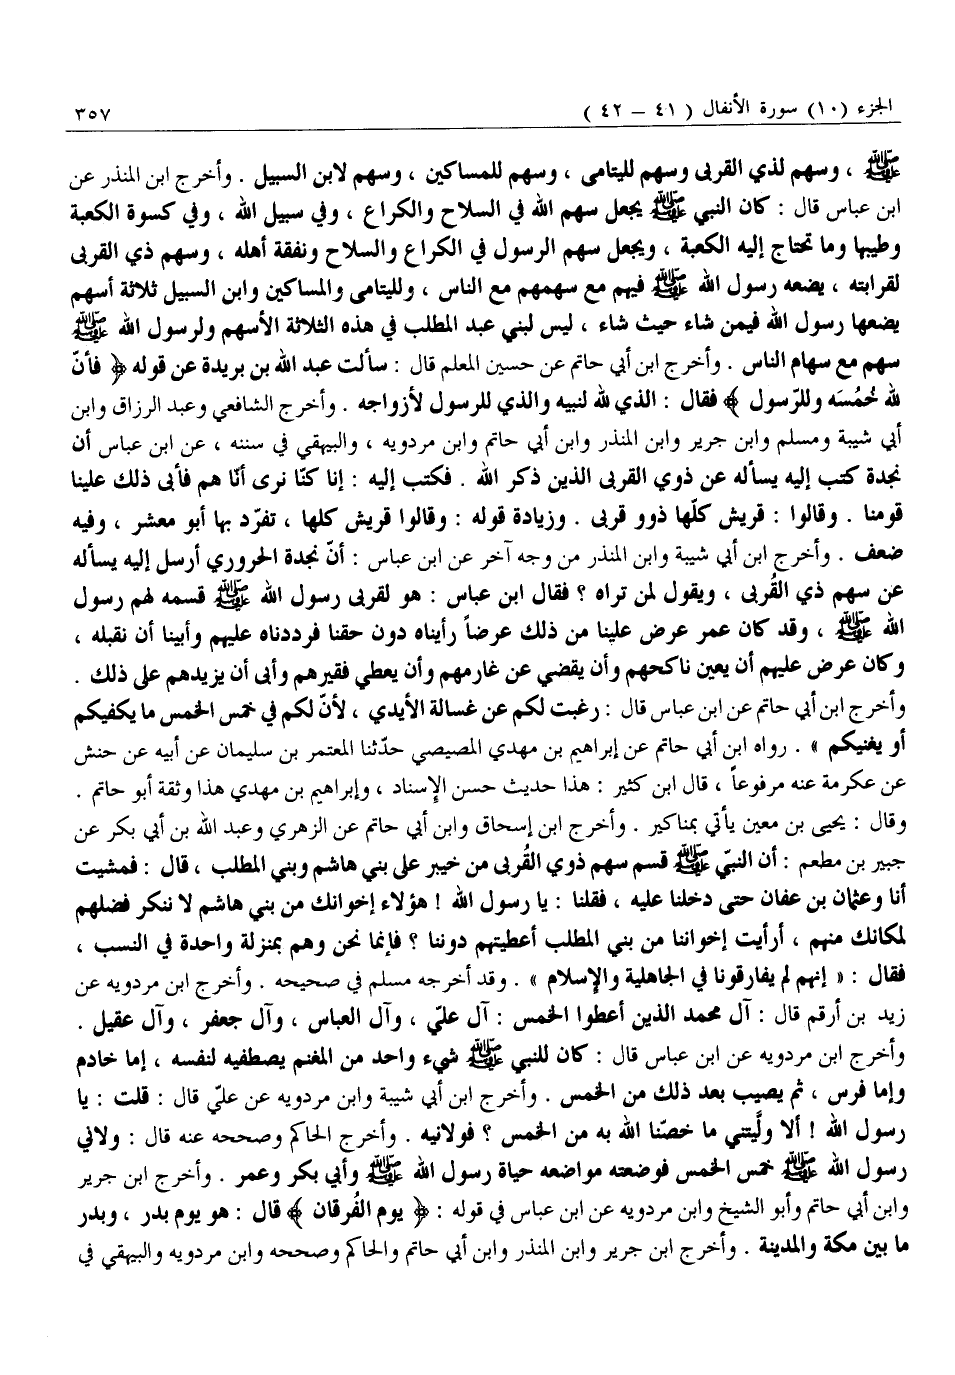 الجزء (١٠) سورة الأنفال ( ٤١ – ٤٢ ) ٣٥٧
ﷺ ، وسهم لذي القربى وسهم لليتامى ، وسهم للمساكين ، وسهم لابن السبيل . وأخرج ابن المنذر عن
ابن عباس قال : كان النبي ﷺ يجعل سهم الله في السلاح والكراع ، وفي سبيل الله ، وفي كسوة الكعبة
وطيبها وما تحتاج إليه الكعبة ، ويجعل سهم الرسول في الكراع والسلاح ونفقة أهله ، وسهم ذي القربى
لقرابته ، يضعه رسول الله ﷺ فيهم مع سهمهم مع الناس ، ولليتامى والمساكين وابن السبيل ثلاثة أسهم
يضعها رسول الله فيمن شاء حيث شاء ، ليس لبني عبد المطلب في هذه الثلاثة الأسهم ولرسول الله ﷺ
سهم مع سهام الناس . وأخرج ابن أبي حاتم عن حسين المعلم قال : سألت عبد الله بن بريدة عن قوله ﴿ فأنّ
لله خُمُسَه وللرّسول ﴾ فقال : الذي لله لنبيه والذي للرسول لأزواجه . وأخرج الشافعي وعبد الرزاق وابن
أبي شيبة ومسلم وابن جرير وابن المنذر وابن أبي حاتم وابن مردويه ، والبيهقي في سننه ، عن ابن عباس أن
نجدة كتب إليه يسأله عن ذوي القربى الذين ذكر الله . فكتب إليه : إنا كنّا نرى أنّا هم فأبى ذلك علينا
قومنا . وقالوا : قريش كلّها ذوو قربى . وزيادة قوله : وقالوا قريش كلها ، تفرّد بها أبو معشر ، وفيه
ضعف . وأخرج ابن أبي شيبة وابن المنذر من وجه آخر عن ابن عباس : أنّ نجدة الحروري أرسل إليه يسأله
عن سهم ذي القُربى ، ويقول لمن تراه ؟ فقال ابن عباس : هو لقربى رسول الله ﷺ قسمه لهم رسول
الله ﷺ ، وقد كان عمر عرض علينا من ذلك عرضاً رأيناه دون حقنا فرددناه عليهم وأبينا أن نقبله ،
وكان عرض عليهم أن يعين ناكحهم وأن يقضي عن غارمهم وأن يعطي فقيرهم وأبى أن يزيدهم على ذلك .
وأخرج ابن أبي حاتم عن ابن عباس قال : رغبت لكم عن غسالة الأيدي ، لأنّ لكم في خمس الخمس ما يكفيكم
أو يغنيكم » . رواه ابن أبي حاتم عن إبراهيم بن مهدي المصيصي حدّثنا المعتمر بن سليمان عن أبيه عن حنش
عن عكرمة عنه مرفوعاً ، قال ابن كثير : هذا حديث حسن الإسناد ، وإبراهيم بن مهدي هذا وثقة أبو حاتم .
وقال : يحيى بن معين يأتي بمناكير . وأخرج ابن إسحاق وابن أبي حاتم عن الزهري وعبد الله بن أبي بكر عن
جبير بن مطعم : أن النبيّ ﷺ قسم سهم ذوي القُربى من خيبر على بني هاشم وبني المطلب ، قال : فمشيت
أنا وعثمان بن عفان حتى دخلنا عليه ، فقلنا : يا رسول الله ! هؤلاء إخوانك من بني هاشم لا ننكر فضلهم
لمكانك منهم ، أرأيت إخواننا من بني المطلب أعطيتهم دوننا ؟ فإنما نحن وهم بمنزلة واحدة في النسب ،
فقال : « إنهم لم يفارقونا في الجاهلية والإسلام » . وقد أخرجه مسلم في صحيحه . وأخرج ابن مردويه عن
زيد بن أرقم قال : آل محمد الذين أعطوا الخمس : آل عليّ ، وآل العباس ، وآل جعفر ، وآل عقيل .
وأخرج ابن مردويه عن ابن عباس قال : كان للنبي ﷺ شيء واحد من المغنم يصطفيه لنفسه ، إما خادم
وإما فرس ، ثم يصيب بعد ذلك من الخمس . وأخرج ابن أبي شيبة وابن مردويه عن عليّ قال : قلت : يا
رسول الله ! ألا ولَّيتني ما خصّنا الله به من الخمس ؟ فولانيه . وأخرج الحاكم وصححه عنه قال : ولاني
رسول الله ﷺ خمس الخمس فوضعته مواضعه حياة رسول الله ﷺ وأبي بكر وعمر . وأخرج ابن جرير
وابن أبي حاتم وأبو الشيخ وابن مردويه عن ابن عباس في قوله : ﴿ يوم الفُرقان ﴾ قال : هو يوم بدر ، وبدر
ما بين مكة والمدينة . وأخرج ابن جرير وابن المنذر وابن أبي حاتم والحاكم وصححه وابن مردويه والبيهقي في